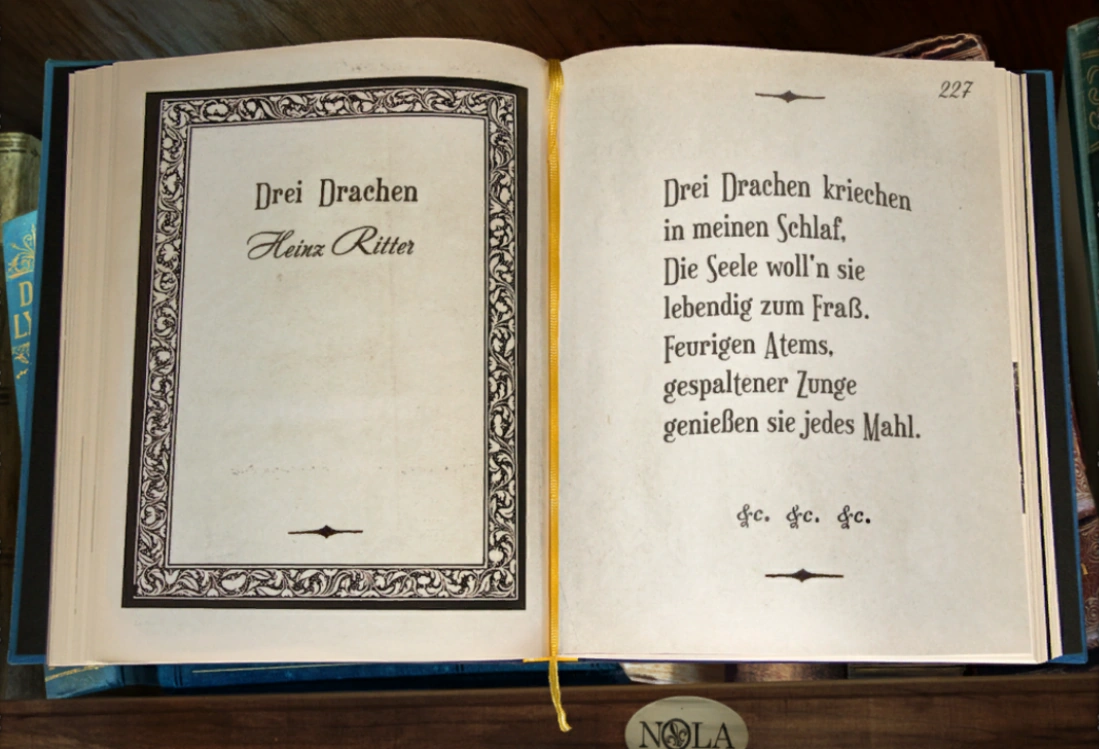 Drei Drachen
Heinz Ritter
227
Drei Drachen kriechen
in meinen Schlaf,
Die Seele woll'n sie
lebendig zum Fraß.
Feurigen Atems,
gespaltener Zunge
genießen sie jedes Mahl.
&c. &c. &c.
NOLA